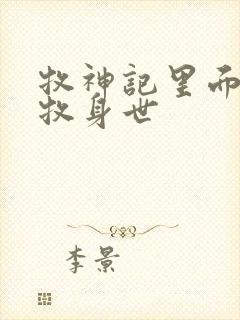 牧神記里而
牧身世
李景